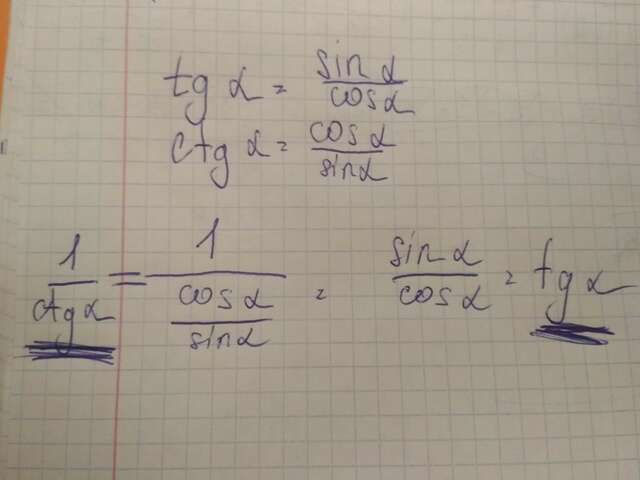 tg α = sin α / cos α
ctg α = cos α / sin α
1 / ctg α = 1 / (cos α / sin α) = sin α / cos α = tg α